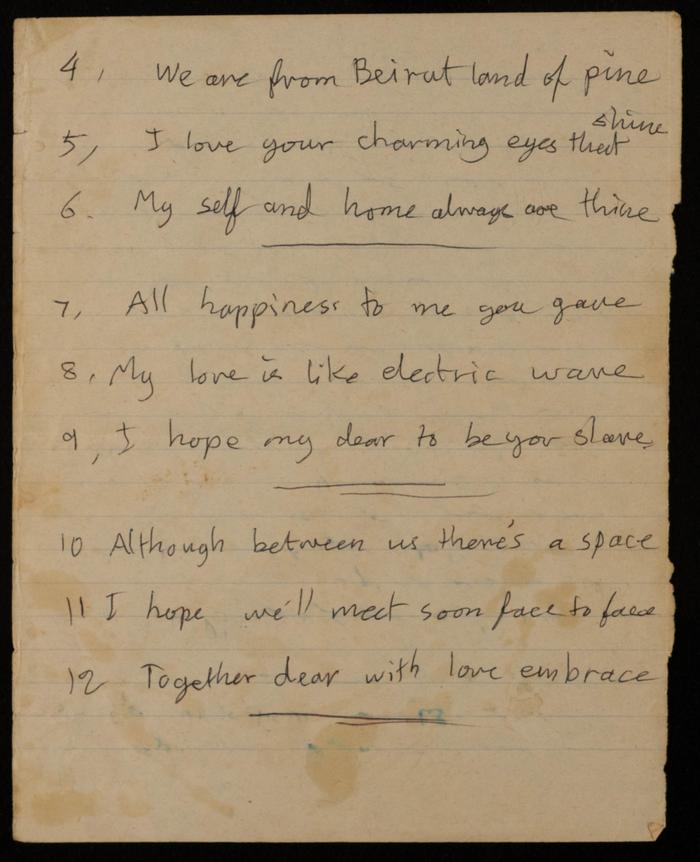 4, We are from Beirut land of pine
5, I love your charming eyes that shine
6. My self and home always are thine
7, All happiness to me you gave
8, My love is like electric wave
9, I hope my dear to be yor slave.
10 Although between us there's a space
11 I hope we'll meet soon face to face
12 Together dear with love embrace